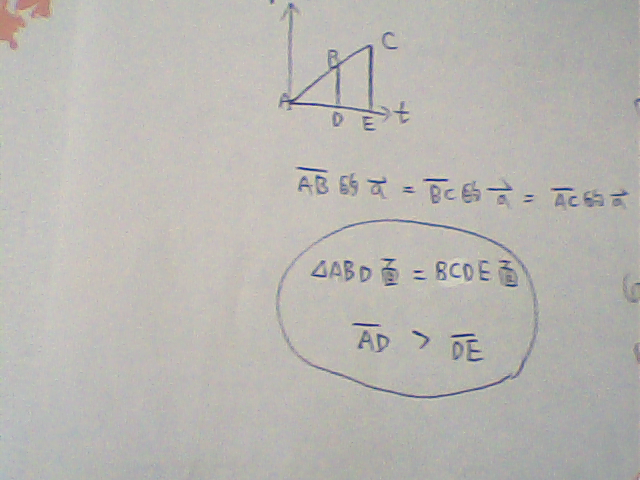 C
B
A
D E t
A̅B̅ 的 a⃗ = B̅C̅ 的 a⃗ = A̅C̅ 的 a⃗
△ABD面 = BCDE面
A̅D̅ > D̅E̅